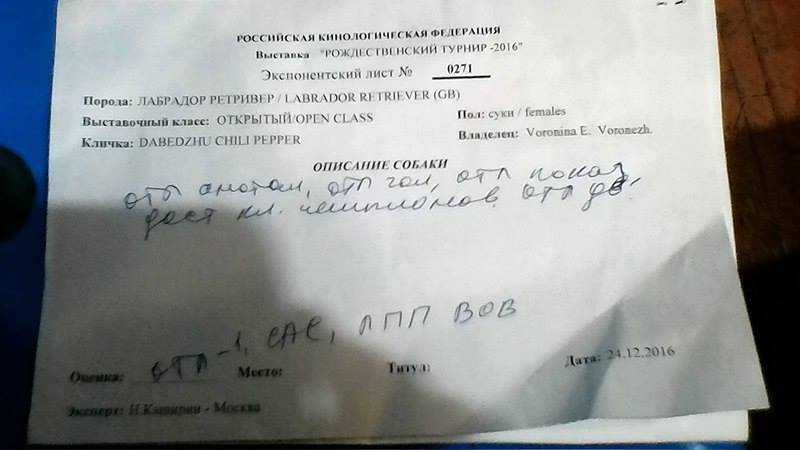 РОССИЙСКАЯ КИНОЛОГИЧЕСКАЯ ФЕДЕРАЦИЯ
Выставка "РОЖДЕСТВЕНСКИЙ ТУРНИР -2016"
Экспонентский лист № 0271
Порода: ЛАБРАДОР РЕТРИВЕР / LABRADOR RETRIEVER (GB)
Выставочный класс: ОТКРЫТЫЙ/OPEN CLASS Пол: суки / females
Кличка: DABEDZHU CHILI PEPPER Владелец: Voronina E. Voronezh.
ОПИСАНИЕ СОБАКИ
отл анатом, отл гол, отл показ
дост кл. чемпионов. отл дв.
Оценка: отл -1, CAC, ЛПП BOB Место: Титул: Дата: 24.12.2016
Эксперт: Н.Каширин - Москва